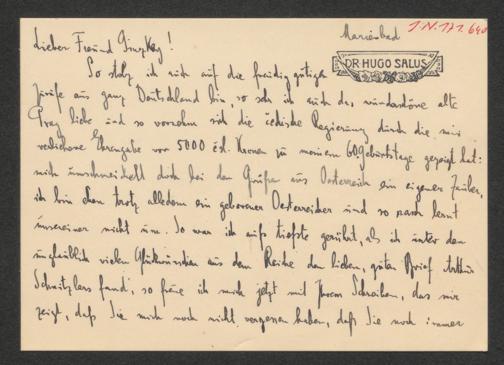 J.N. 171.640
Marienbad
DR HUGO SALUS
Lieber Freund Ginzkey!
So stolz ich auch auf die freudig gütigen
Grüße aus ganz Deutschland bin, so sehr ich auch das wunderschöne alte
Prag liebe und so vornehm sich die čechische Regierung durch die mir
verliehene Ehrengabe von 5000 čsl. Kronen zu meinem 60. Geburtstage gezeigt hat:
mich umschmeichelt doch bei den Grüßen aus Oesterreich ein eigener Zauber,
ich bin eben trotz alledem ein geborener Oesterreicher und so rasch lernt
unsereiner nicht um. So war ich aufs tiefste gerührt, als ich unter den
unglaublich vielen Glückwünschen aus dem Reiche den lieben, guten Brief Arthur
Schnitzlers fand, so freue ich mich jetzt mit Ihrem Schreiben, das mir
zeigt, daß Sie mich noch nicht vergessen haben, daß Sie noch immer